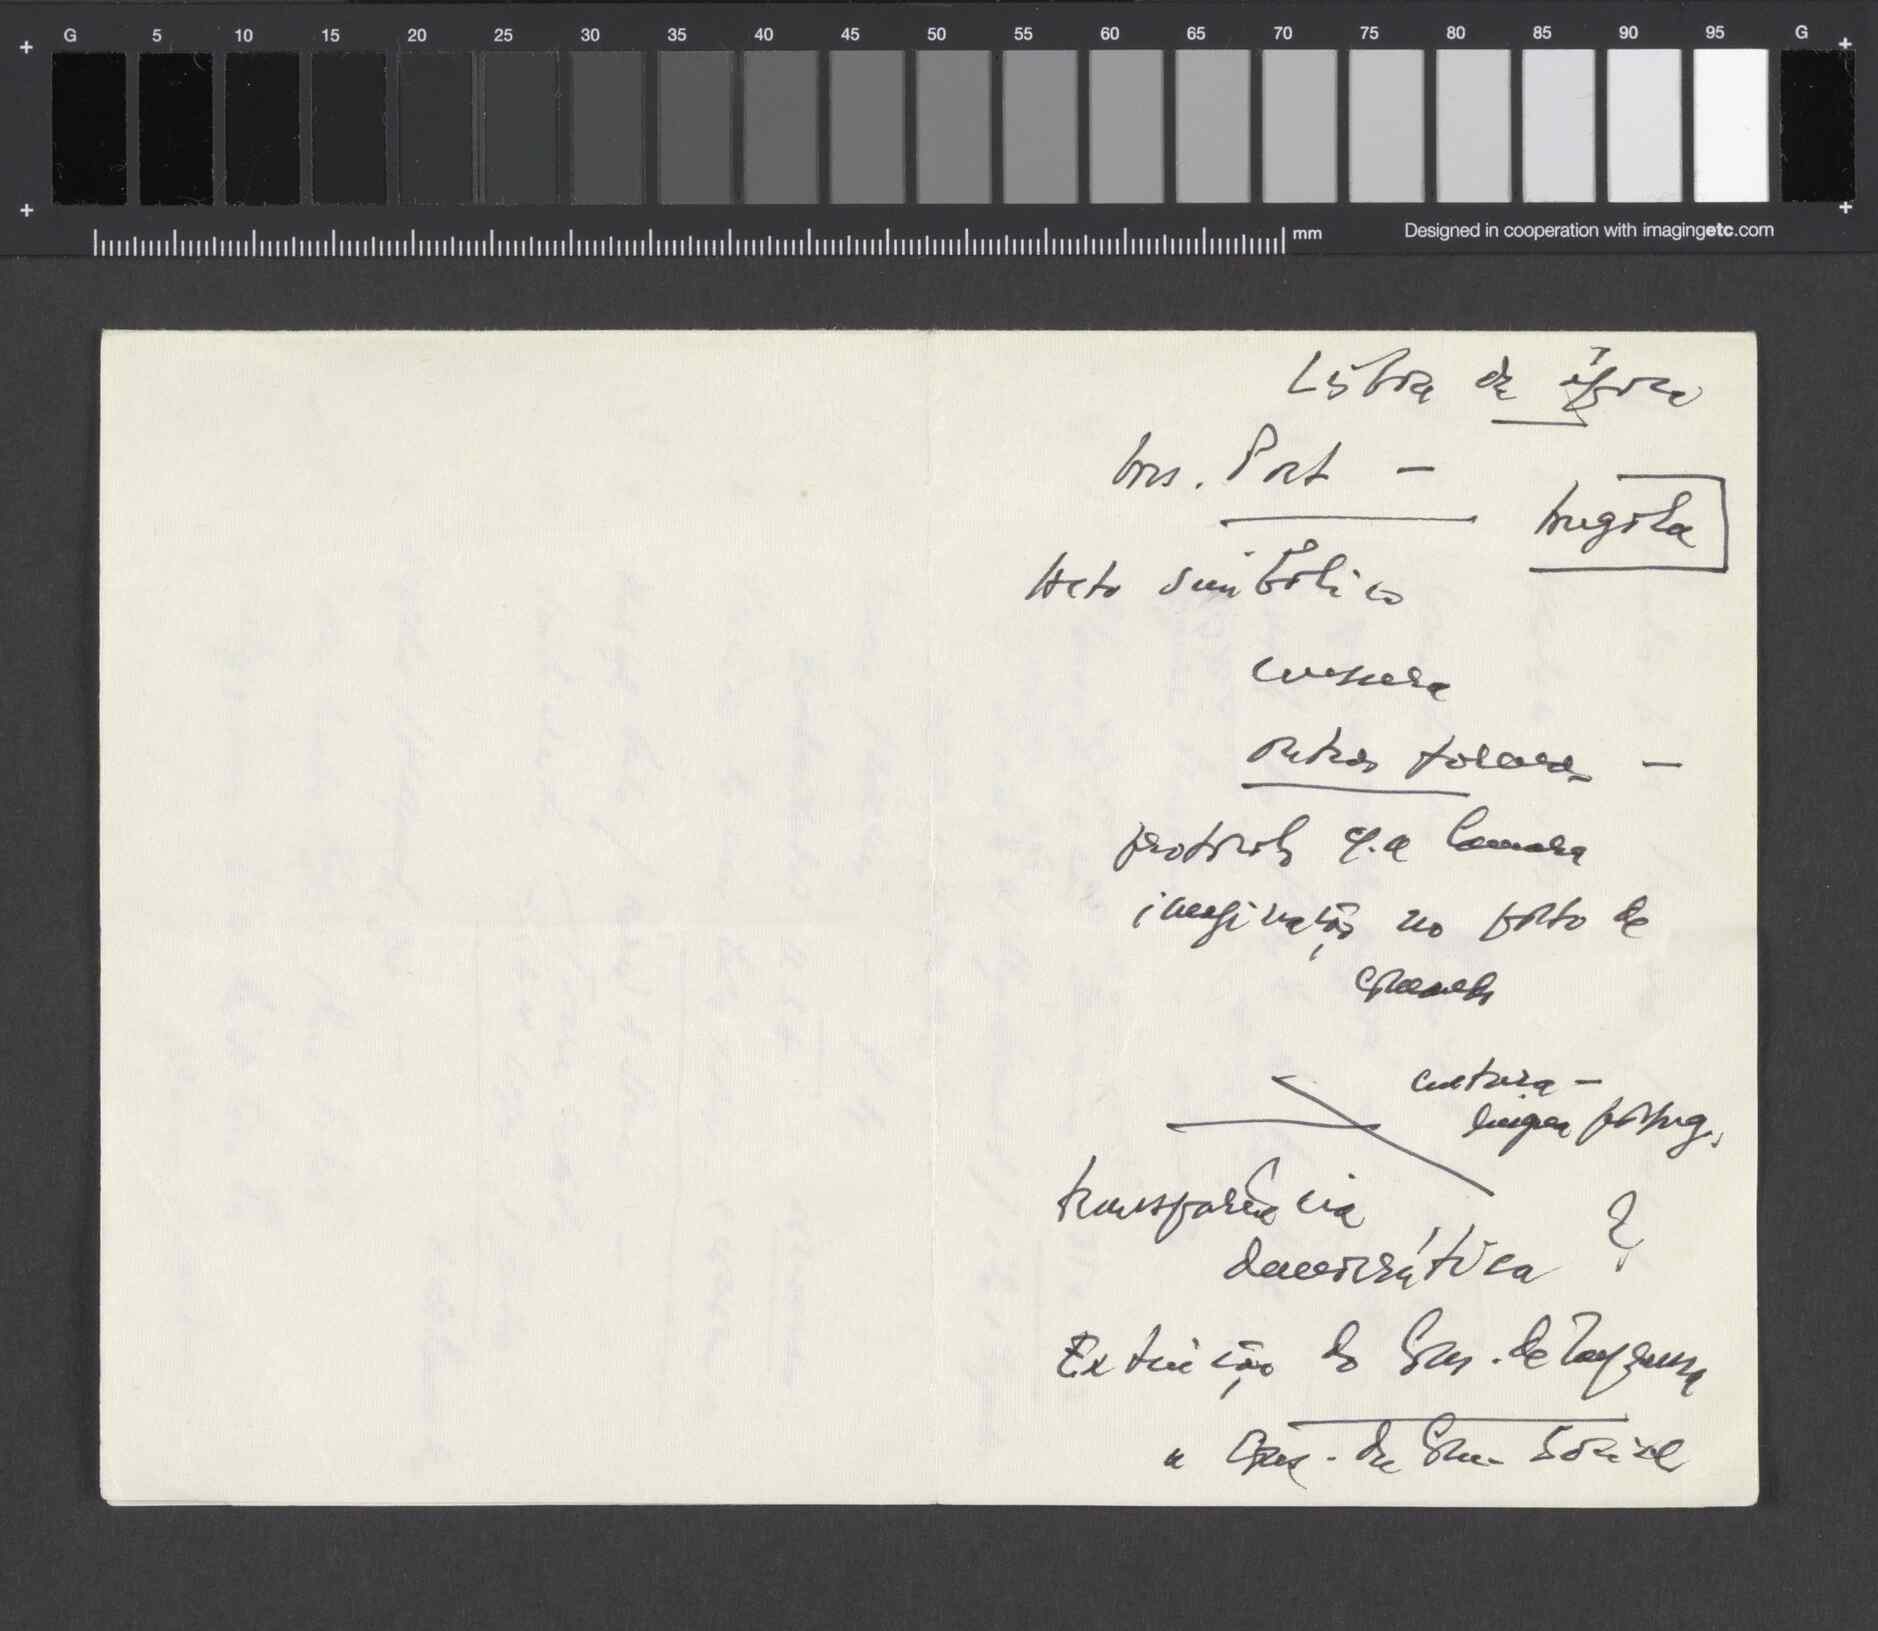 G 5 10 15 20 25 30 35 40 45 50 55 60 65 70 75 80 85 90 95 G
mm Designed in cooperation with imagingetc.com
Lisboa de
Ass. Port —
Angola
Acto simbólico
censura
outras formas —
protocolo c/. a Camara
imaginação no posto de
comando
cultura —
lingua portug.
transparência
democrática ?
Extinção do Con. de Imprensa
e Cons. da Com. Social